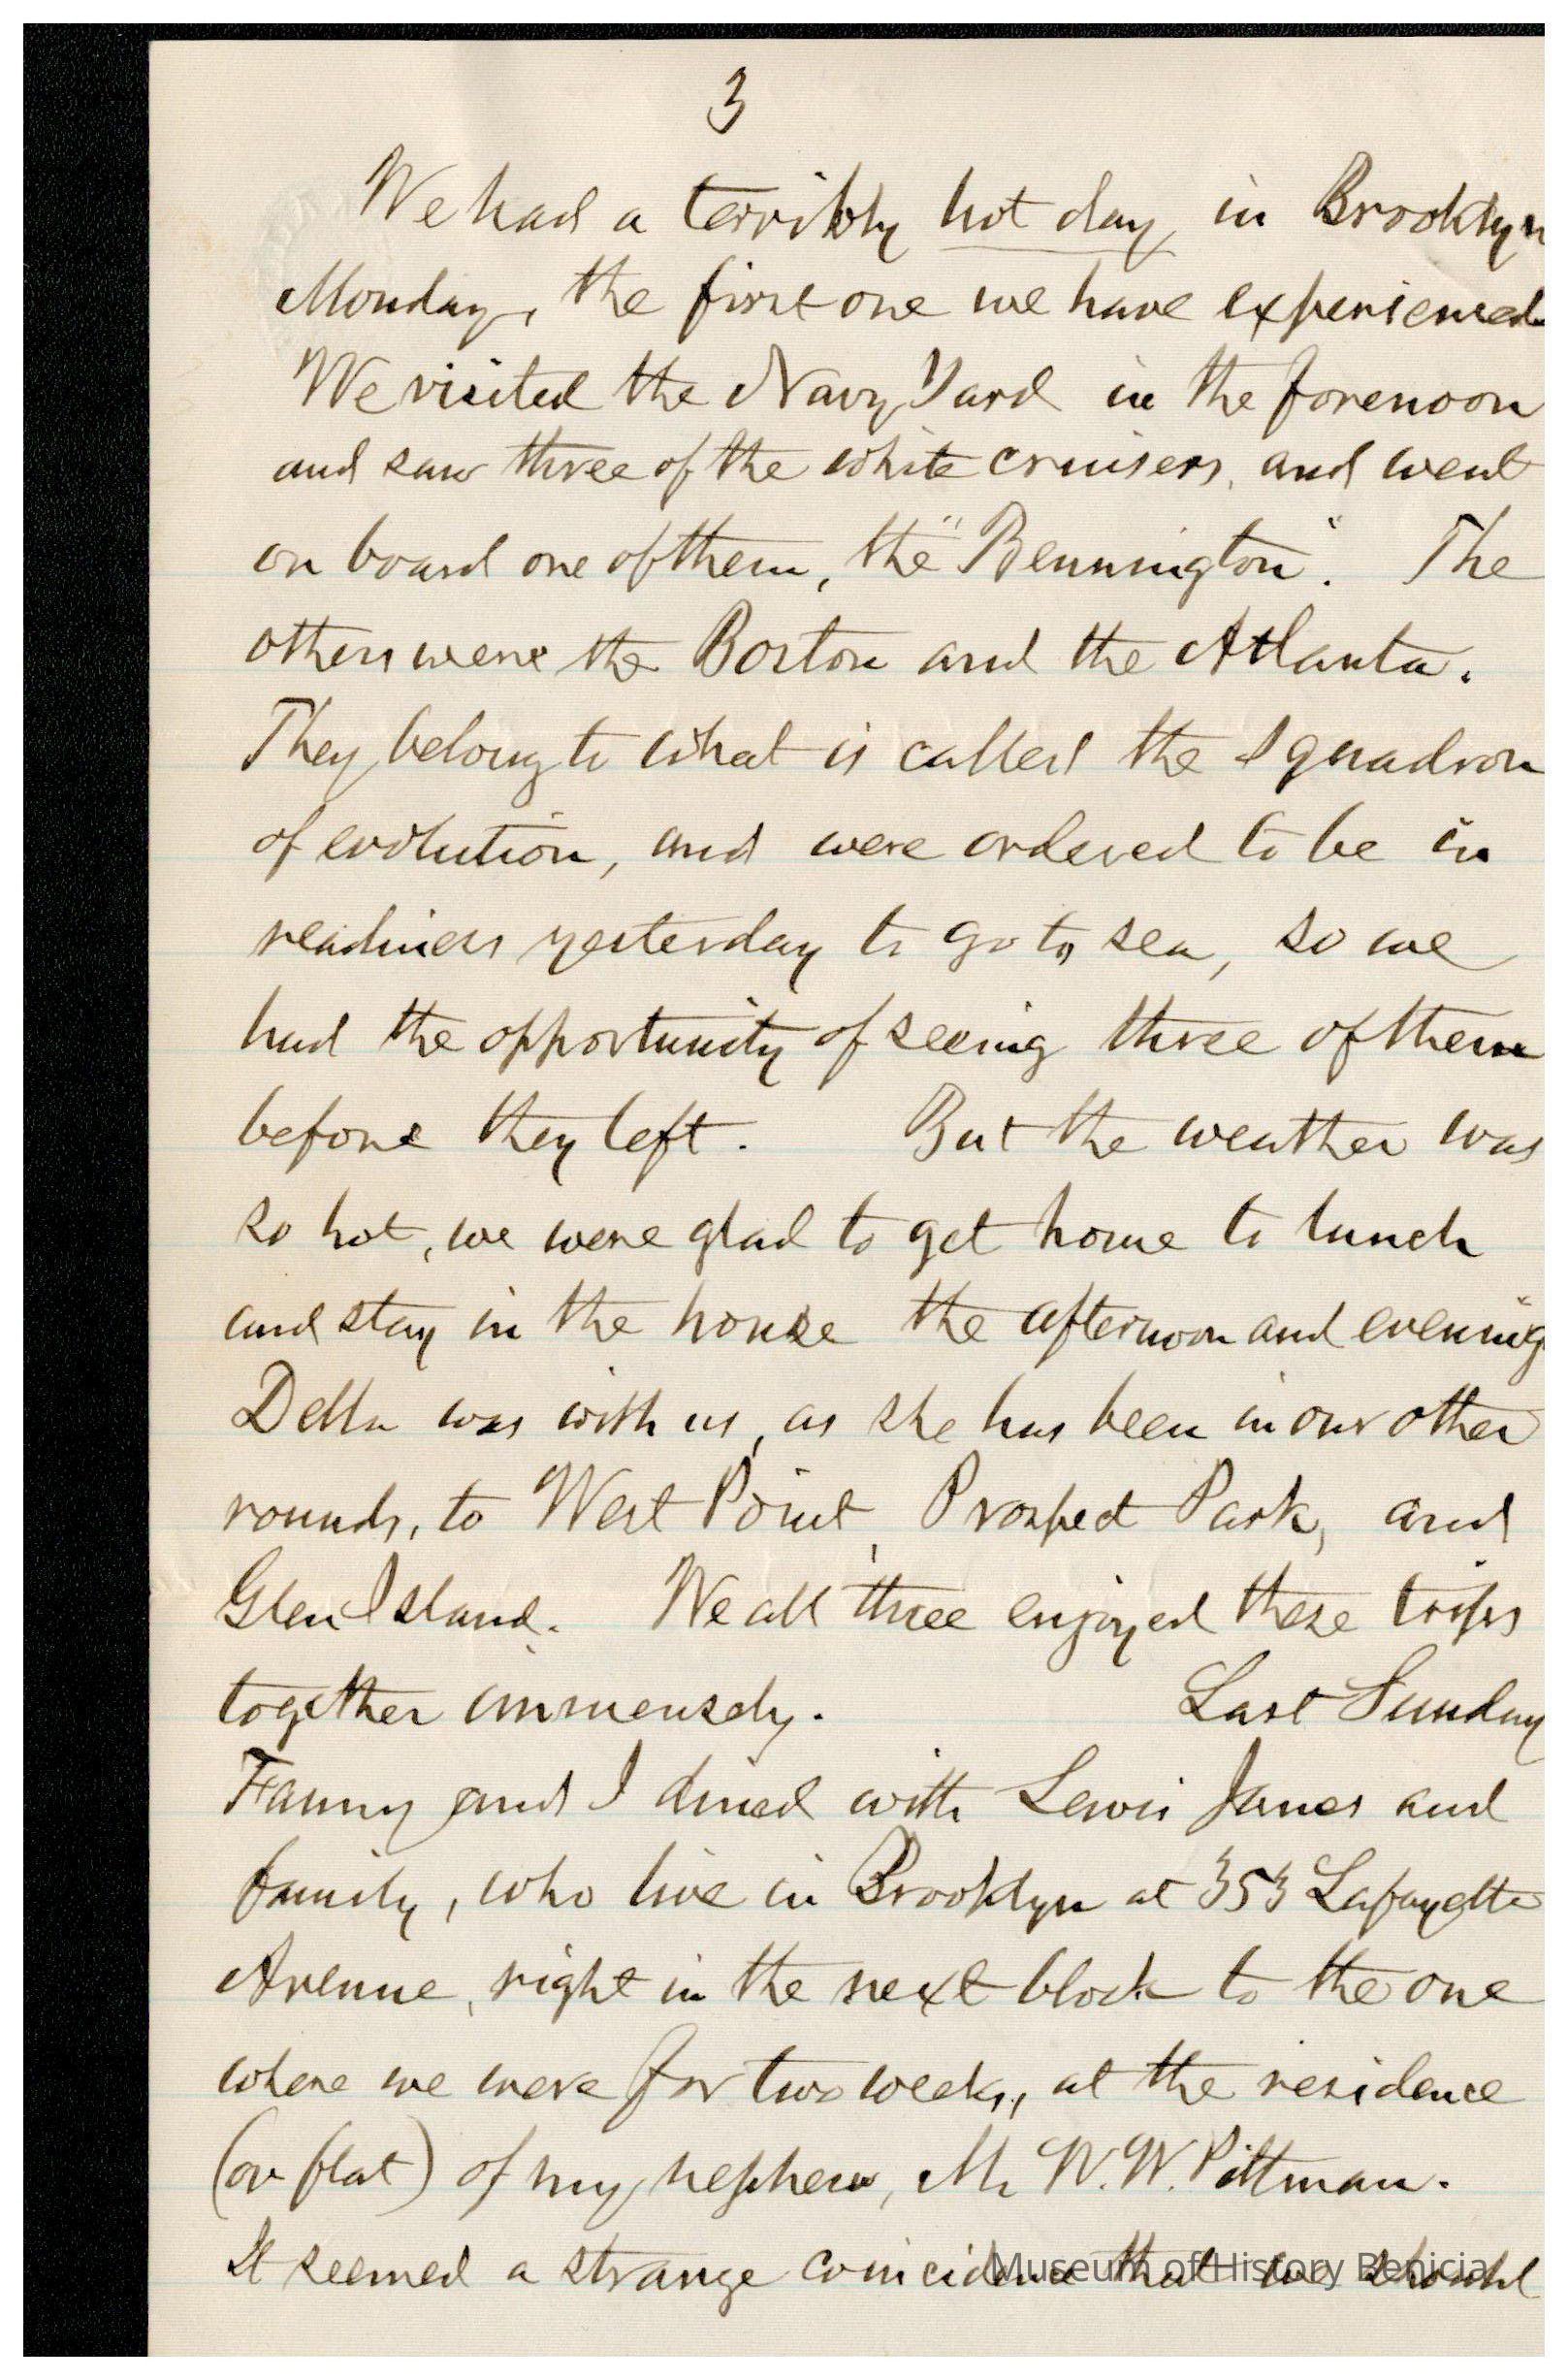 3
We had a terribly hot day, in Brooklyn
Monday, the first one we have experienced
We visited the Navy Yard in the forenoon
and saw three of the white cruisers, and went
on board one of them, the "Bennington". The
others were the Boston and the Atlanta.
They belong to what is called the Squadron
of evolution, and were ordered to be in
readiness yesterday to go to sea, so we
had the opportunity of seeing three of them
before they left. But the weather was
so hot, we were glad to get home to lunch
and stay in the house the afternoon and evening
Della was with us, as she has been in our other
rounds, to West Point, Prospect Park, and
Glen Island. We all three enjoyed these trips
together immensely. Last Sunday
Fanny and I dined with Lewis Janes and
family, who live in Brooklyn at 353 Lafayette
Avenue, right in the next block to the one
where we were for two weeks, at the residence
(or flat) of my nephew, Mr W. W. Pittman.
It seemed a strange coincidence that we should
Museum of History Benicia